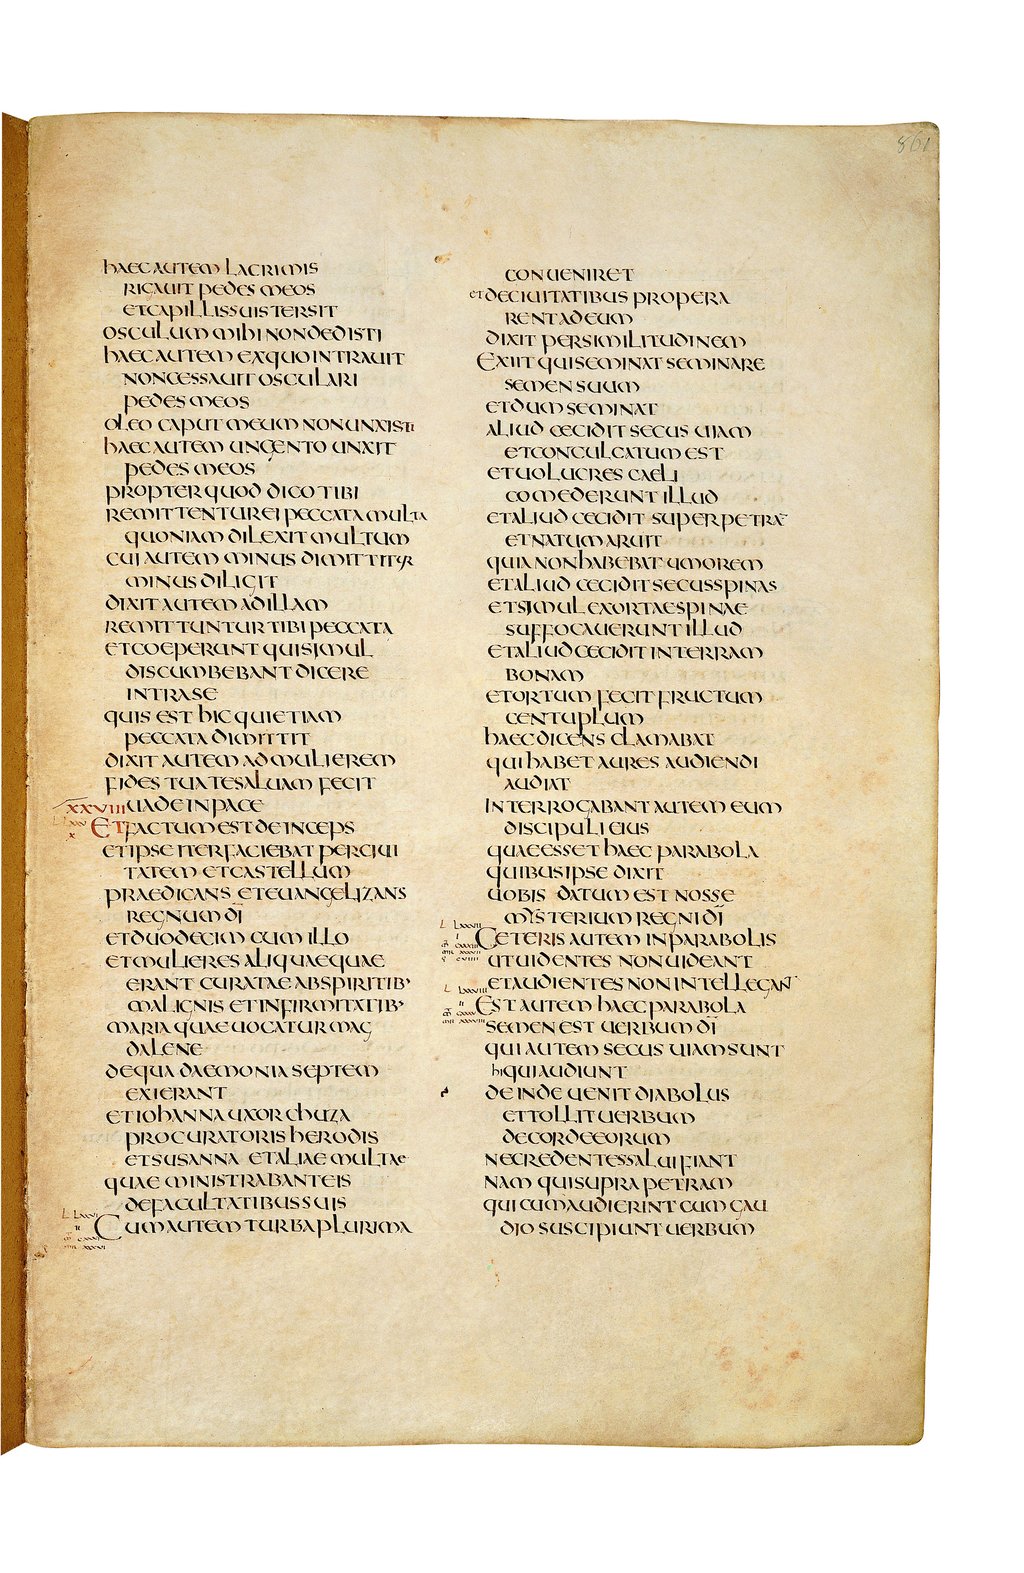 861
haec autem lacrimis
rigauit pedes meos
et capillis suis tersit
osculum mihi non dedisti
haec autem ex quo intrauit
non cessauit osculari
pedes meos
oleo caput meum non unxisti
haec autem ungento unxit
pedes meos
propter quod dico tibi
remittentur ei peccata multa
quoniam dilexit multum
cui autem minus dimittitur
minus diligit
dixit autem ad illam
remittuntur tibi peccata
et coeperunt qui simul
discumbebant dicere
intra se
quis est hic qui etiam
peccata dimittit
dixit autem ad mulierem
fides tua te saluam fecit
xxviii uade in pace
Et factum est deinceps
et ipse iter faciebat per ciui
tatem et castellum
praedicans et euangelizans
regnum dī
et duodecim cum illo
et mulieres aliquae quae
erant curatae ab spiritib'
malignis et infirmitatib'
maria quae uocatur mag
dalene
de qua daemonia septem
exierant
et iohanna uxor chuza
procuratoris herodis
et susanna et aliae multae
quae ministrabant eis
de facultatibus suis
Cum autem turba plurima
conueniret
et de ciuitatibus propera
rent ad eum
dixit per similitudinem
Exiit qui seminat seminare
semen suum
et dum seminat
aliud cecidit secus uiam
et conculcatum est
et uolucres caeli
comederunt illud
et aliud cecidit super petrā
et natum aruit
quia non habebat umorem
et aliud cecidit secus spinas
et simul exortae spinae
suffocauerunt illud
et aliud cecidit in terram
bonam
et ortum fecit fructum
centuplum
haec dicens clamabat
qui habet aures audiendi
audiat
interrogabant autem eum
discipuli eius
quae esset haec parabola
quibus ipse dixit
uobis datum est nosse
mysterium regni dī
L lxxvii
Ceteris autem in parabolis
ut uidentes non uideant
et audientes non intellegant
L lxxviii
Est autem haec parabola
semen est uerbum dī
qui autem secus uiam sunt
hi qui audiunt
deinde uenit diabolus
et tollit uerbum
de corde eorum
ne credentes salui fiant
nam qui supra petram
qui cum audierint cum gau
dio suscipiunt uerbum